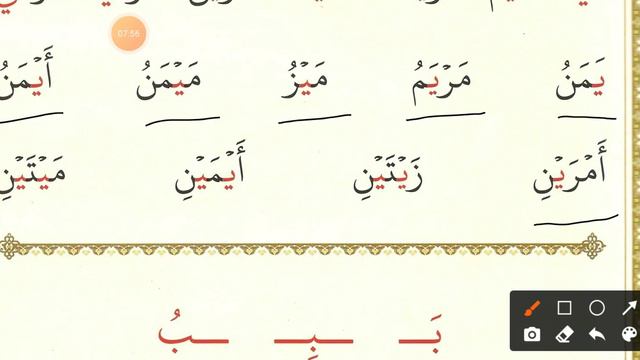 07:56
يَمَنُ مَرْيَمُ مَيْزُ مَيْمَنُ أَيْمَنُ
أَمْرَيْنِ زَيْتَيْنِ أَيْمَيْنِ مَيْتَيْنِ
بَـ ـبِـ ـبُ